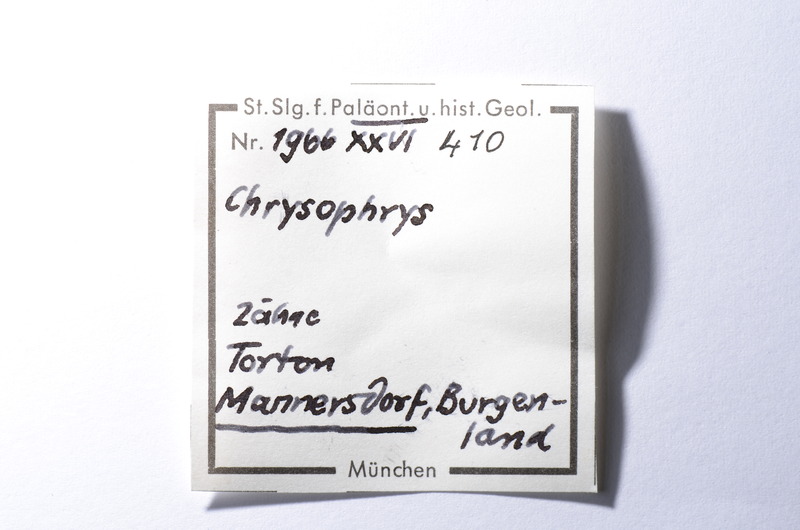 St. Slg. f. Paläont. u. hist. Geol.
Nr. 1966 XXVI 410
Chrysophrys
Zähne
Torton
Mannersdorf, Burgen-
land
München